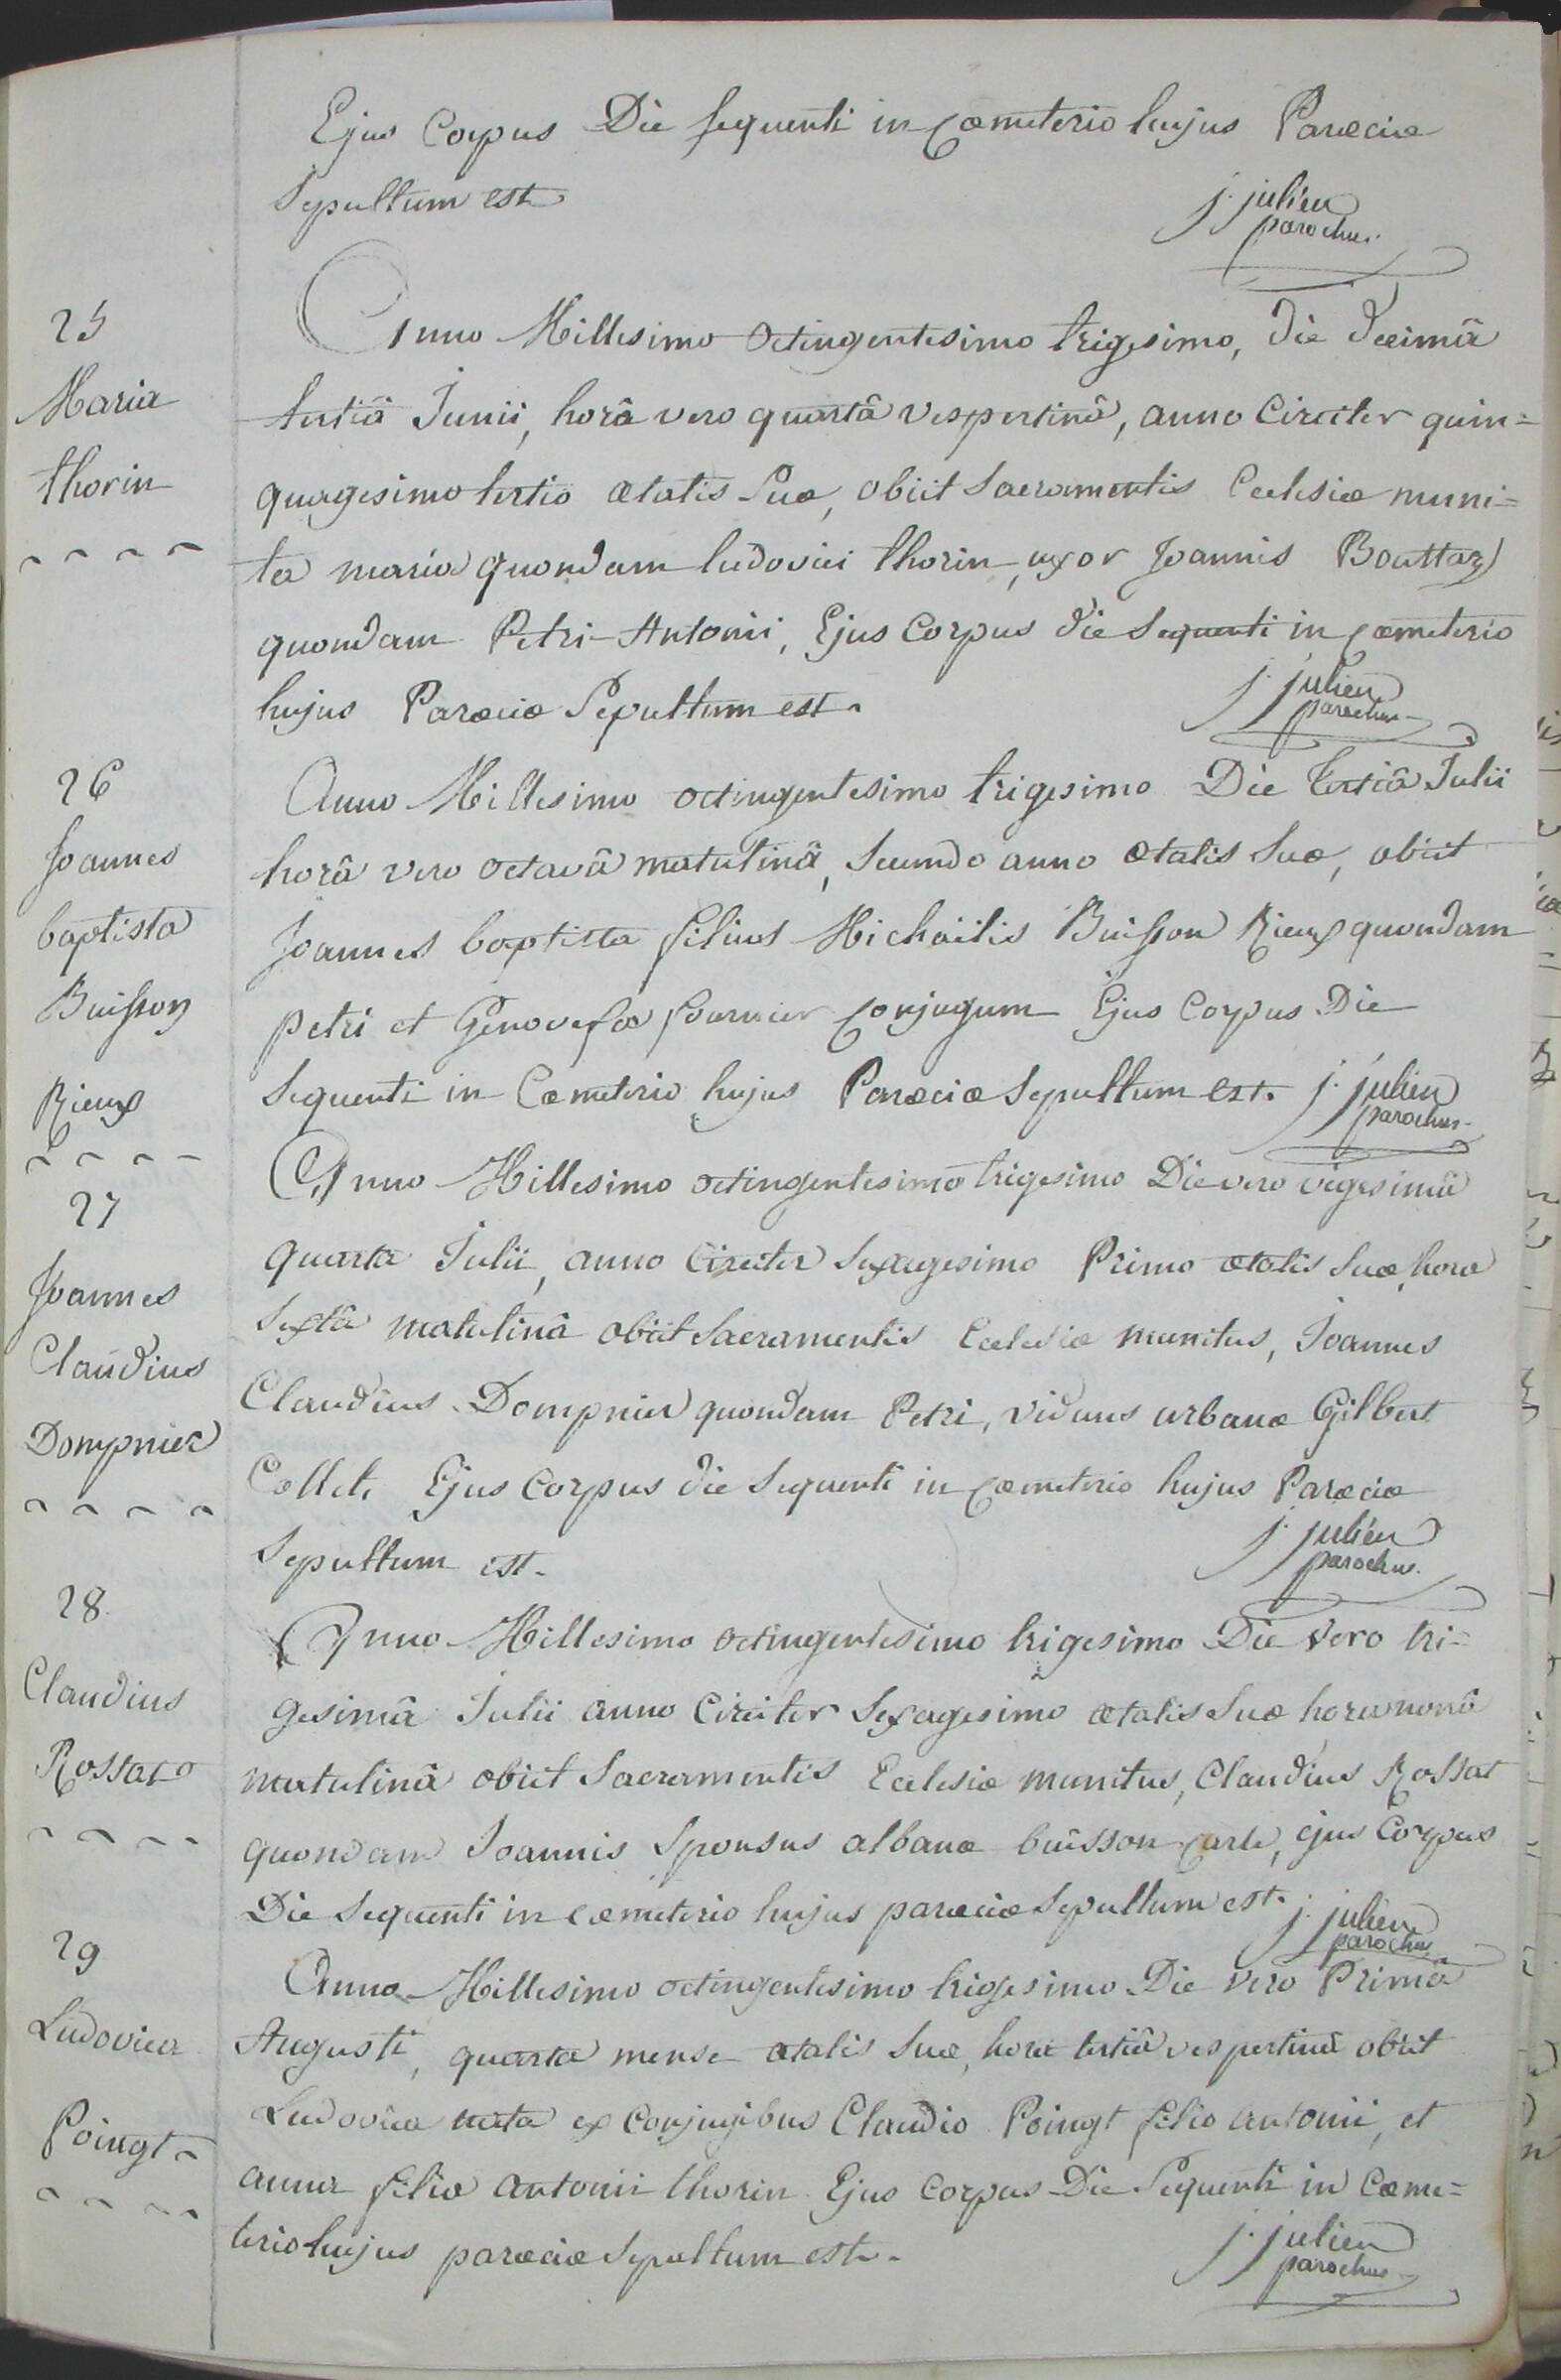 Ejus Corpus Die sequenti in Cœmeterio hujus Parœciæ
Sepultum est
j. julien
parochus.
25
Maria
thorin
Anno Millesimo Octingentesimo trigesimo, die decimâ
tertiâ Junii, horâ vero quartâ vespertinâ, anno Circiter quin=
quagesimo tertio ætatis Suæ, obiit Sacramentis Ecclesiæ muni=
ta maria quondam ludovici thorin, uxor Joannis Bouttaz
quondam Petri-Antonii, Ejus Corpus die Sequenti in Cœmeterio
hujus Parœciæ Sepultum est.
j. julien
parochus
26
Joannes
baptista
Buisson
Rieux
Anno Millesimo octingentesimo trigesimo Die tertiâ Julii
horâ vero octavâ matutinâ, Secundo anno ætatis Suæ, obiit
Joannes baptista filius Michaëlis Buisson Rieux quondam
petri et Genovefæ fournier Conjugum Ejus Corpus Die
Sequenti in Cœmeterio hujus Parœciæ Sepultum est.
j. julien
parochus.
27
Joannes
Claudius
Dompnier
Anno Millesimo octingentesimo trigesimo Die vero vigesimâ
quarta Julii, anno Circiter Sexagesimo Primo ætatis Suæ, hora
Sextâ matutinâ obiit Sacramentis Ecclesiæ munitus, Joannes
Claudius Dompnier quondam Petri, viduus urbanæ Gilbert
Collet. Ejus Corpus die Sequenti in Cœmeterio hujus Parœciæ
Sepultum est.
j. julien
parochus.
28.
Claudius
Rossat
Anno Millesimo octingentesimo trigesimo Die vero tri=
gesimâ Julii anno Circiter Sexagesimo ætatis Suæ hora nonâ
matutinâ obiit Sacramentis Ecclesiæ munitus, Claudius Rossat
quondam Joannis Sponsus albanæ buisson Carle, ejus Corpus
Die Sequenti in cœmeterio hujus parœciæ Sepultum est.
j. julien
parochus
29
Ludovica
Poingt
Anno Millesimo octingentesimo trigesimo Die vero Primâ
Augusti, quarta mense ætatis Suæ, hora tertiâ vespertinâ obiit
Ludovica nata ex Conjugibus Claudio Poingt filio antonii, et
anna filia antonii thorin Ejus Corpus Die Sequenti in Cœme=
terio hujus parœciæ Sepultum est.
j. julien
parochus